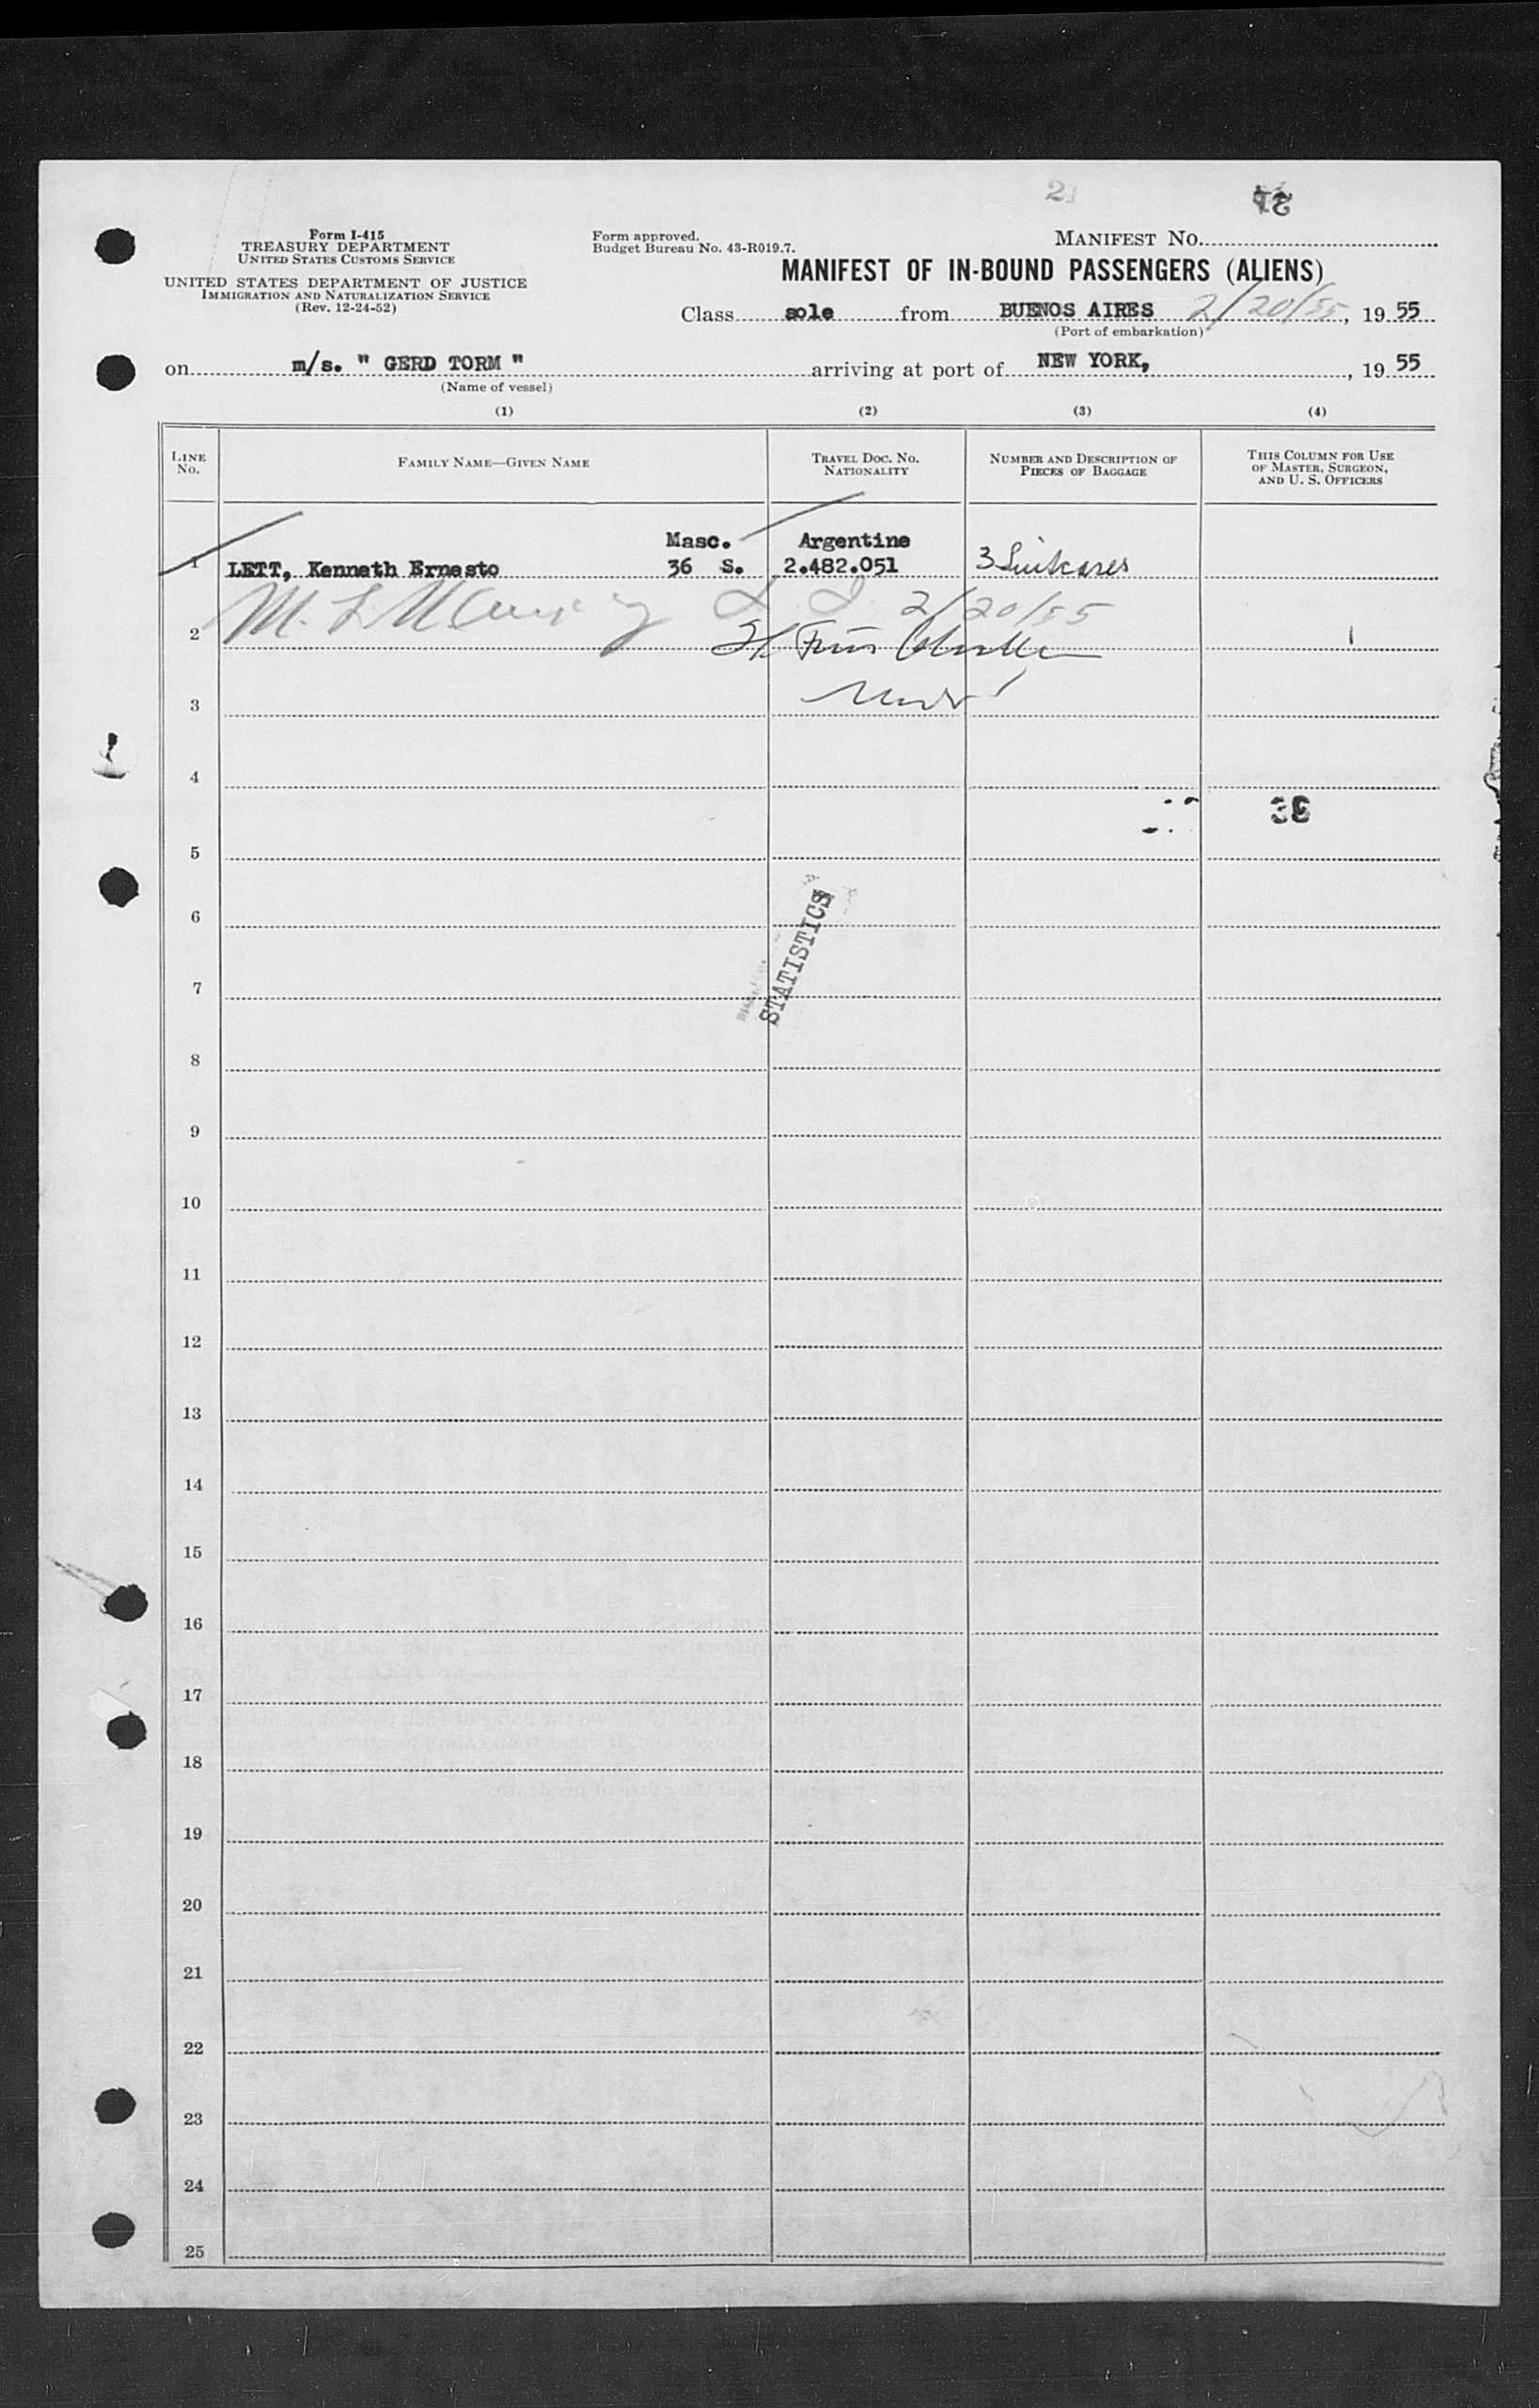 Form I-415
TREASURY DEPARTMENT
UNITED STATES CUSTOMS SERVICE
UNITED STATES DEPARTMENT OF JUSTICE
IMMIGRATION AND NATURALIZATION SERVICE
(Rev. 12-24-52)
Form approved.
Budget Bureau No. 43-R019.7.
MANIFEST NO.
MANIFEST OF IN-BOUND PASSENGERS (ALIENS)
Class sole from BUENOS AIRES 2/20/55, 19 55
(Port of embarkation)
on m/s. " GERD TORM " arriving at port of NEW YORK, , 19 55
(Name of vessel)
(1) (2) (3) (4)
LINE No. FAMILY NAME—GIVEN NAME TRAVEL DOC. NO. NATIONALITY NUMBER AND DESCRIPTION OF PIECES OF BAGGAGE THIS COLUMN FOR USE OF MASTER, SURGEON, AND U. S. OFFICERS
Masc. Argentine
1 LETT, Kenneth Ernesto 36 S. 2.482.051 3 Suitcases
2/20/55
2
3
4
36
5
6
STATISTICS
7
8
9
10
11
12
13
14
15
16
17
18
19
20
21
22
23
24
25